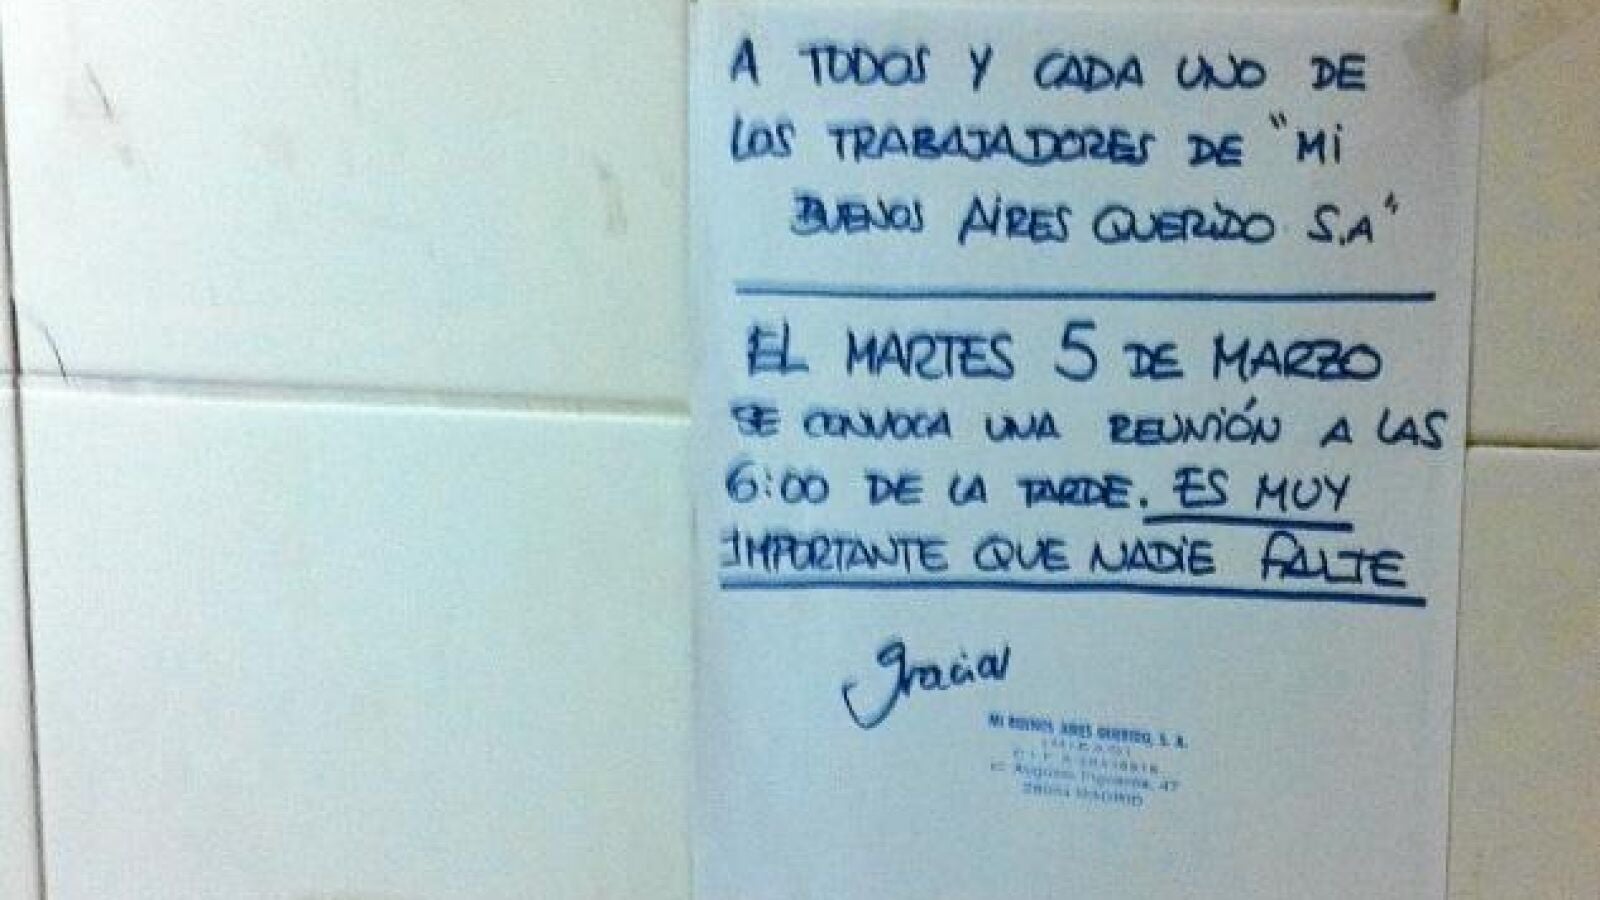 A TODOS Y CADA UNO DE
LOS TRABAJADORES DE "Mi
BUENOS AIRES QUERIDO S.A"
EL MARTES 5 DE MARZO
SE CONVOCA UNA REUNIÓN A LAS
6:00 DE LA TARDE. ES MUY
IMPORTANTE QUE NADIE FALTE
gracias
MI BUENOS AIRES QUERIDO, S. A.
C.I.F.
C/. Augusto Figueroa, 47
28004 MADRID